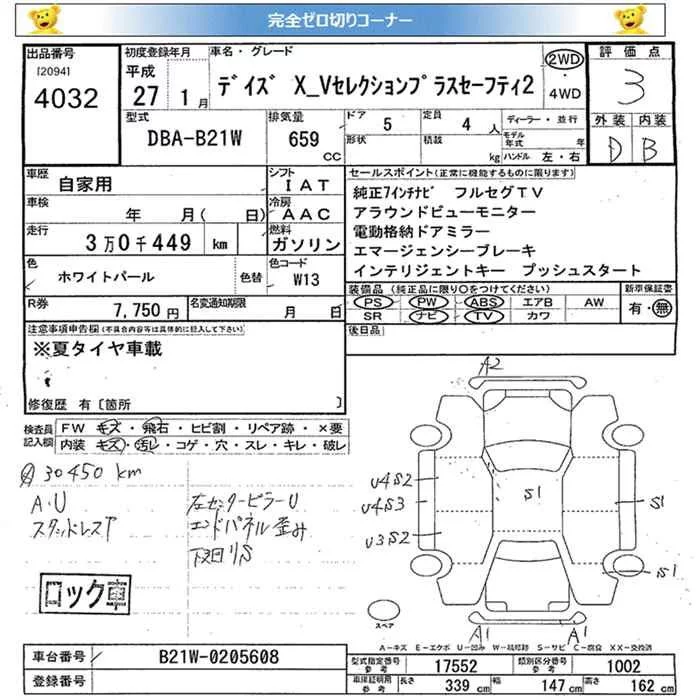 完全ゼロ切りコーナー
出品番号
[2094]
4032
初度登録年月
平成
27 1月
車名・グレード
デイズ X_Vセレクションプラスセーフティ2
2WD
・
4WD
評価点
3
外装 内装
D B
型式
DBA-B21W
排気量
659
CC
ドア
5
定員
4 人
形状
積載
kg
ディーラー・並行
モデル
年式 年
ハンドル 左・右
車歴
自家用
シフト
IAT
車検
年 月( 日)
冷房
AAC
走行
3万0千449 km
燃料
ガソリン
色
ホワイトパール
色替
色コード
W13
R券
7,750円
名変通知期限
月 日
セールスポイント(正常に機能するものに限ります)
純正7インチナビ フルセグTV
アラウンドビューモニター
電動格納ドアミラー
エマージェンシーブレーキ
インテリジェントキー プッシュスタート
装備品(純正品に限り○をつけてください)
PS PW ABS エアB AW
SR ナビ TV カワ
新車保証書
有・無
後日品
注意事項申告欄(不具合内容等は具体的に記入して下さい)
※夏タイヤ車載
修復歴 有〔箇所 〕
検査員
記入欄
FW キズ・飛石・ヒビ割・リペア跡・×要
内装 キズ・汚レ・コゲ・穴・スレ・キレ・破レ
30450 km
A・U
スタッドレスT
左センターピラーU
エンドパネル歪み
下回りS
ロック車
A2
U4S2
U4S3
U3S2
S1
S1
S1
A1
A1
スペア
A-キズ E-エクボ U-凹み W-補修跡 S-サビ C-腐食 XX-交換済
車台番号
B21W-0205608
登録番号
型式指定番号
参考
17552
類別区分番号
参考
1002
車庫証明用
参考
長さ
339 cm
幅
147 cm
高さ
162 cm